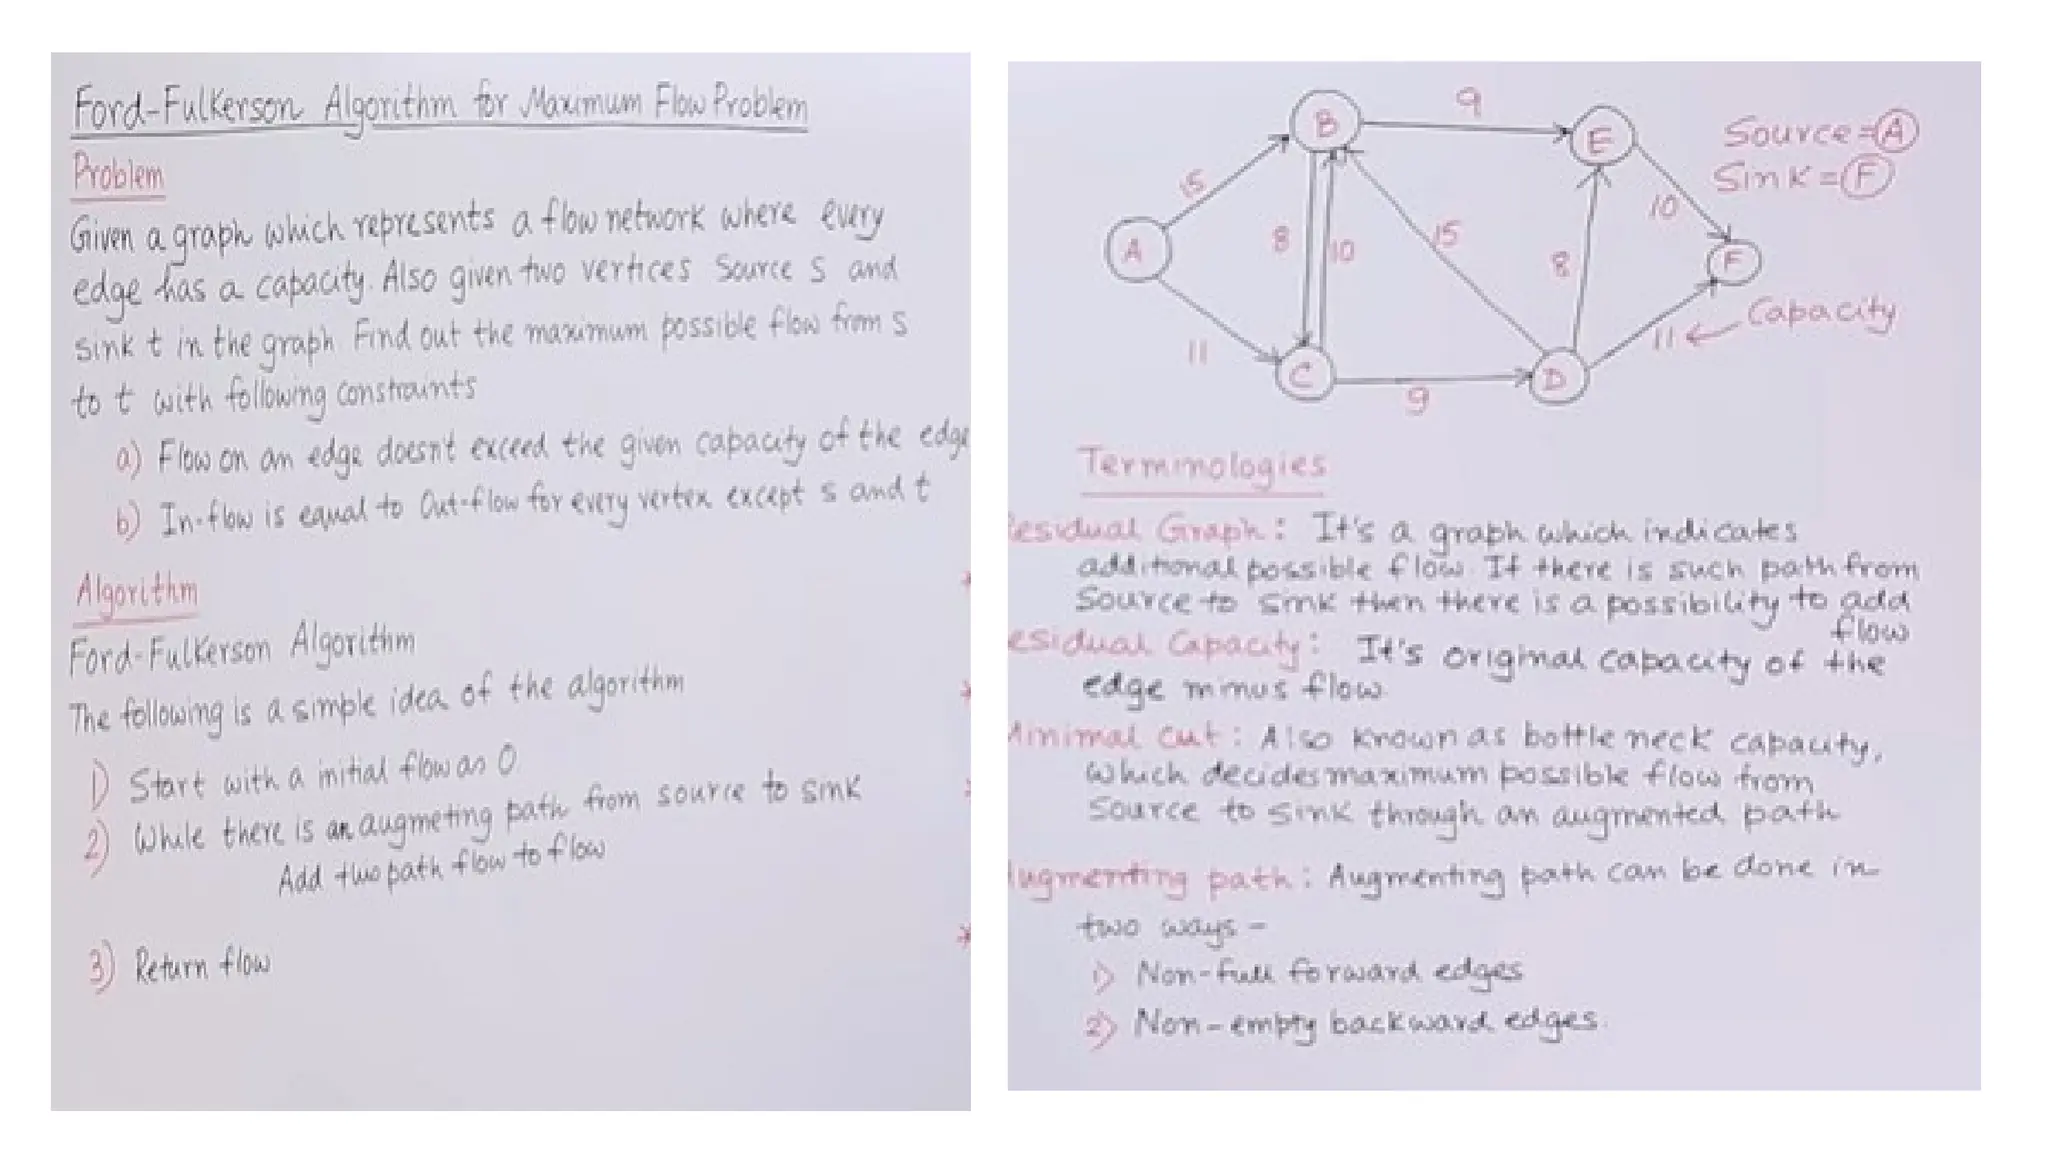 Ford-Fulkerson Algorithm for Maximum Flow Problem
Problem
Given a graph which represents a flow network where every
edge has a capacity. Also given two vertices Source S and
sink t in the graph Find out the maximum possible flow from S
to t with following constraints
a) Flow on an edge doesn't exceed the given capacity of the edge
b) In-flow is equal to Out-flow for every vertex except s and t
Algorithm
Ford-Fulkerson Algorithm
The following is a simple idea of the algorithm
1) Start with a initial flow as 0
2) While there is an augmeting path from source to sink
Add two path flow to flow
3) Return flow
B
9
E
Source = A
Sink = F
15
10
A
8
10
15
8
F
Capacity
11
11
C
9
D
Terminologies
esidual Graph: It's a graph which indicates
additional possible flow. If there is such path from
Source to sink then there is a possibility to add
flow
esidual Capacity: It's original capacity of the
edge minus flow.
inimal cut: Also known as bottle neck capacity,
which decides maximum possible flow from
Source to sink through an augmented path
ugmenting path: Augmenting path can be done in
two ways -
1) Non-full forward edges
2) Non-empty backward edges.